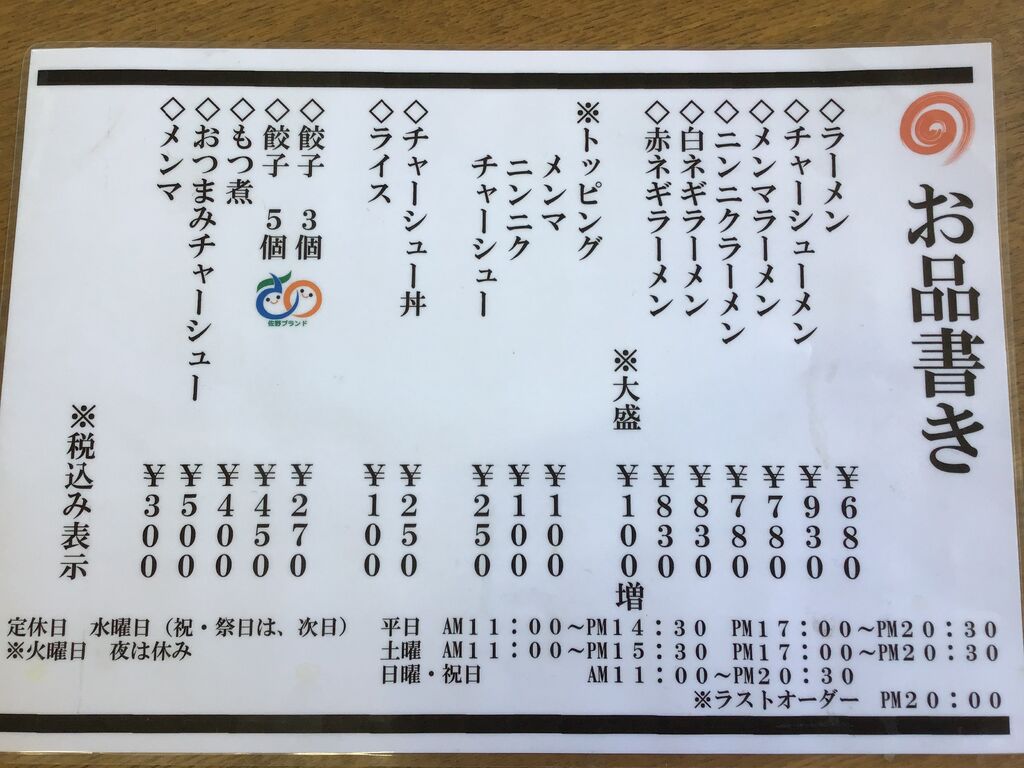 お品書き
◇ラーメン ￥680
◇チャーシューメン ￥930
◇メンマラーメン ￥780
◇ニンニクラーメン ￥780
◇白ネギラーメン ￥830
◇赤ネギラーメン ￥830
※大盛 ￥100増
※トッピング
メンマ ￥100
ニンニク ￥100
チャーシュー ￥250
◇チャーシュー丼 ￥250
◇ライス ￥100
◇餃子 3個 ￥270
◇餃子 5個 ￥450
佐野ブランド
◇もつ煮 ￥400
◇おつまみチャーシュー ￥500
◇メンマ ￥300
※税込み表示
定休日 水曜日（祝・祭日は、次日）
※火曜日 夜は休み
平日 AM11：00～PM14：30 PM17：00～PM20：30
土曜 AM11：00～PM15：30 PM17：00～PM20：30
日曜・祝日 AM11：00～PM20：30
※ラストオーダー PM20：00